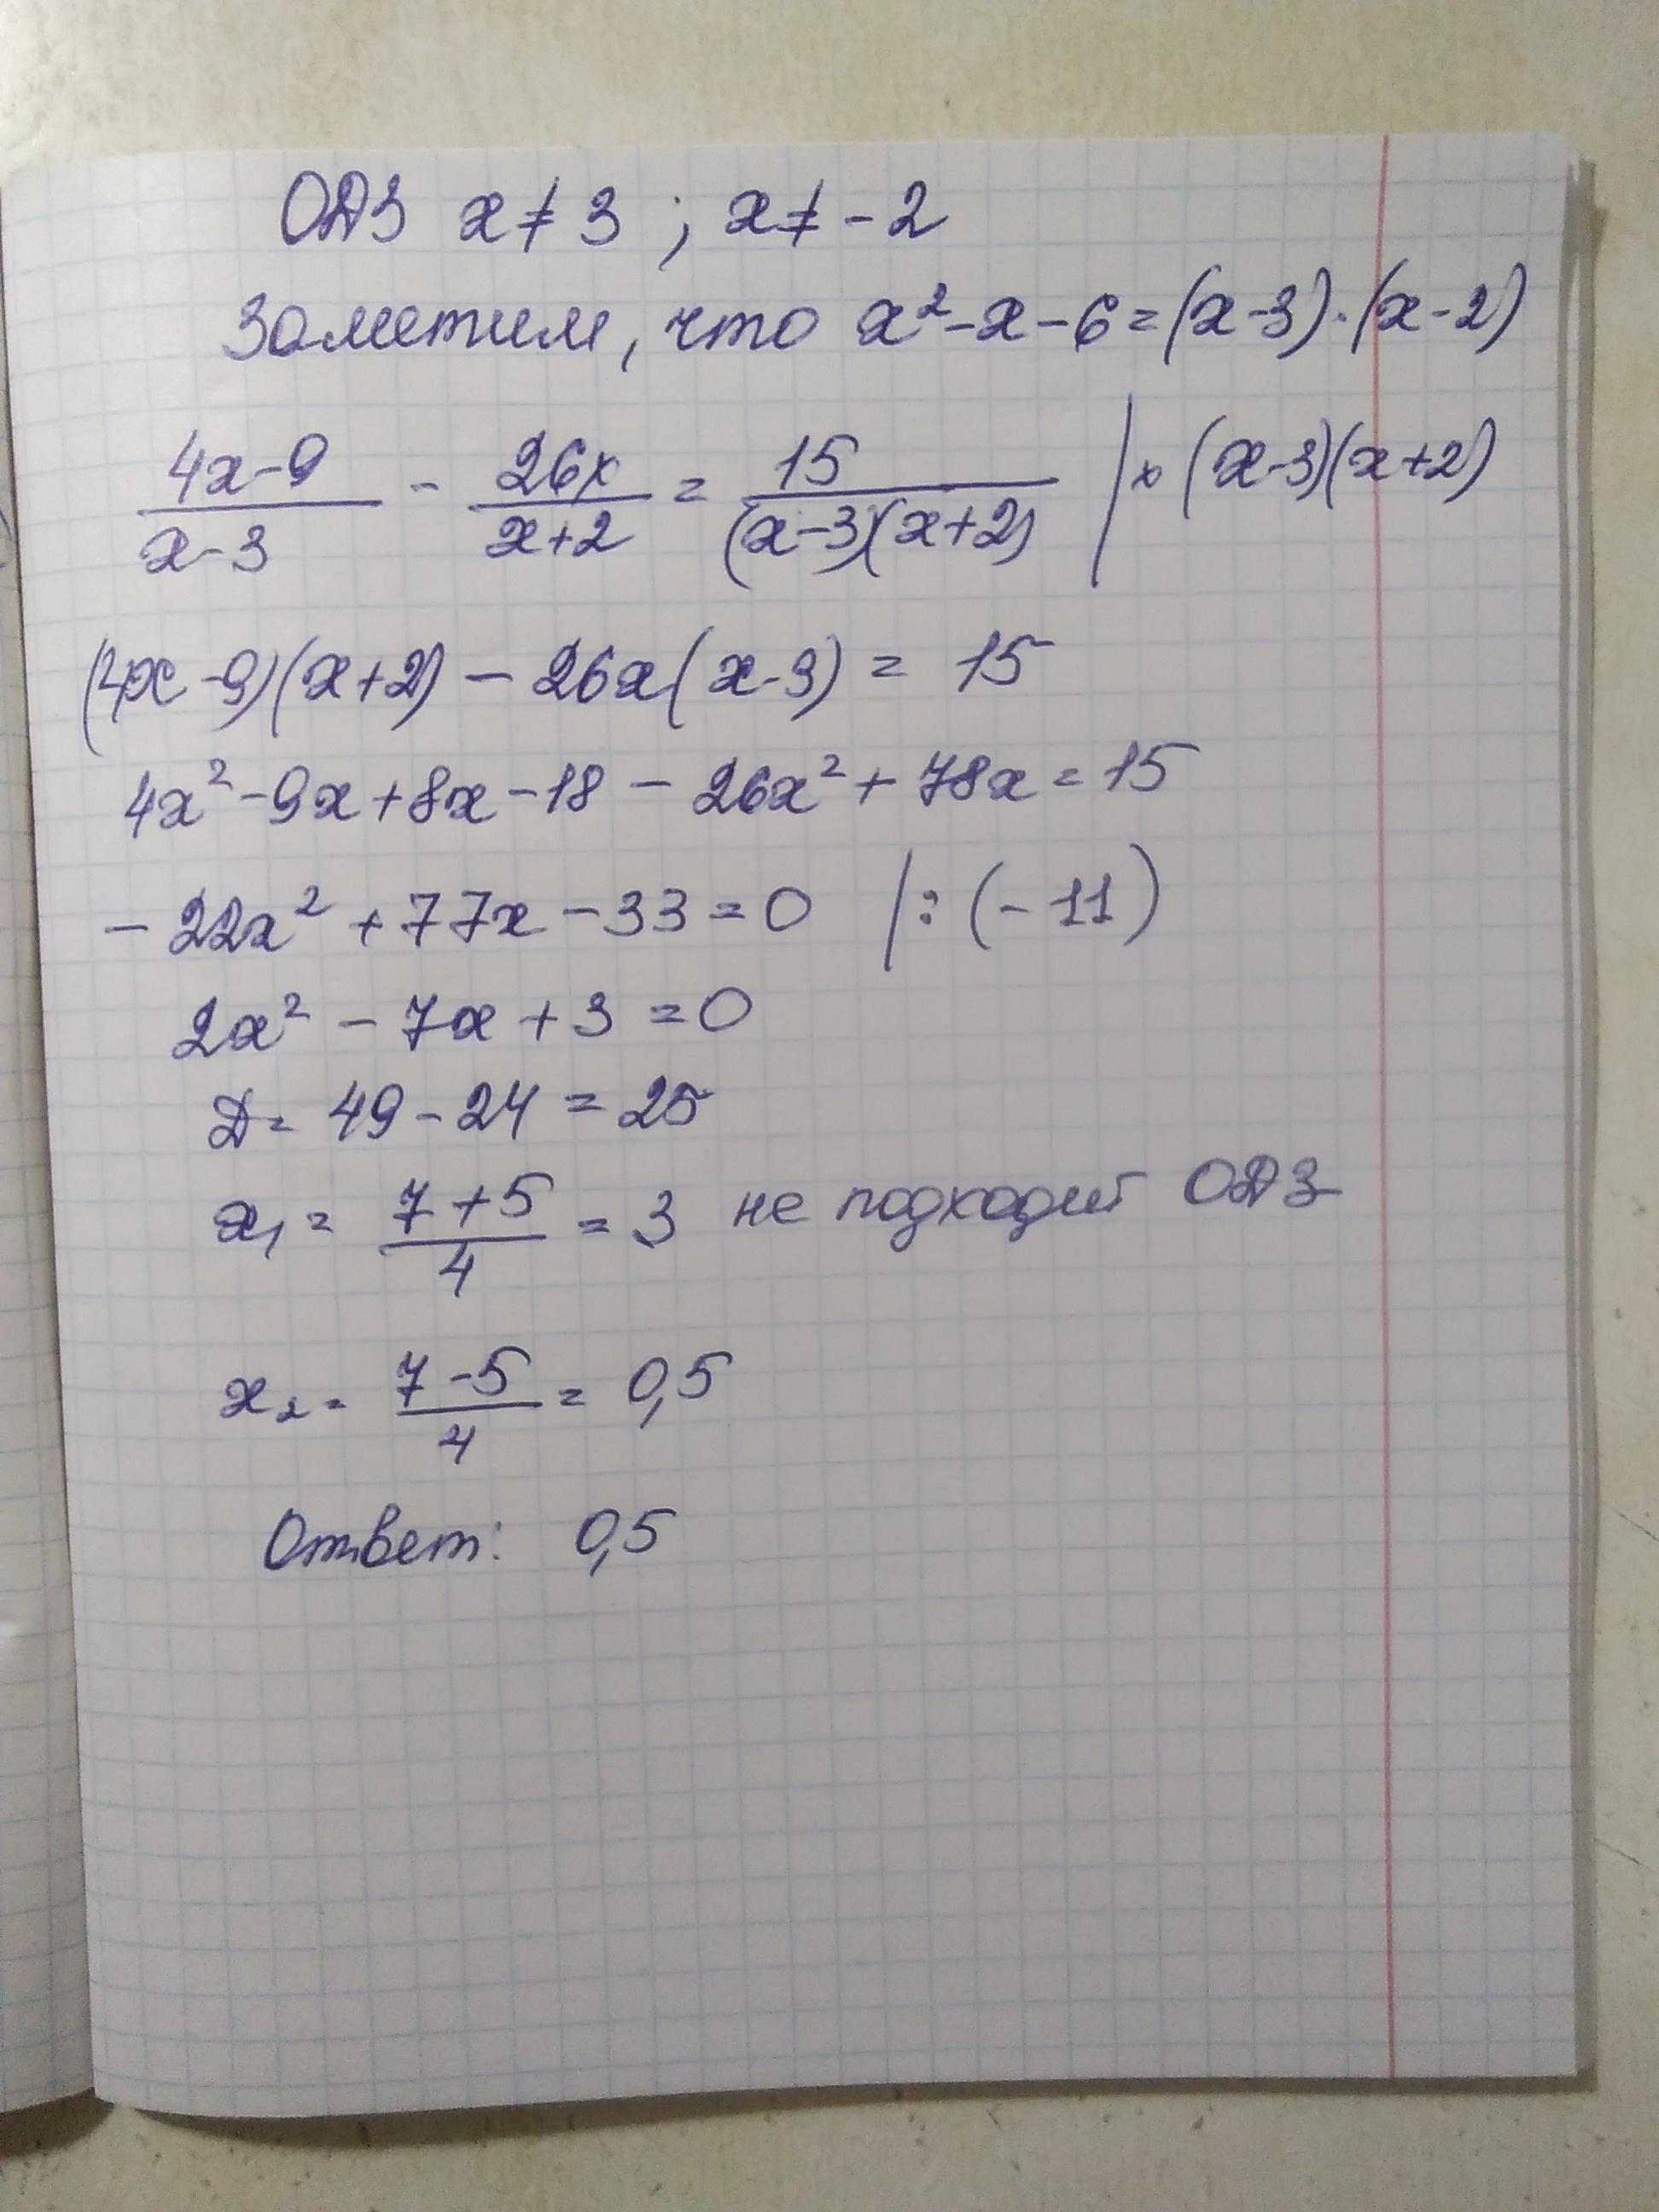 ОДЗ x ≠ 3 ; x ≠ -2
Заметим, что x² - x - 6 = (x-3)·(x-2)
4x-9/x-3 - 26x/x+2 = 15/(x-3)(x+2) | × (x-3)(x+2)
(4x-9)(x+2) - 26x(x-3) = 15
4x² - 9x + 8x - 18 - 26x² + 78x = 15
- 22x² + 77x - 33 = 0 |: (-11)
2x² - 7x + 3 = 0
Д = 49 - 24 = 25
x₁ = 7+5/4 = 3 не подходит ОДЗ
x₂ = 7-5/4 = 0,5
Ответ: 0,5